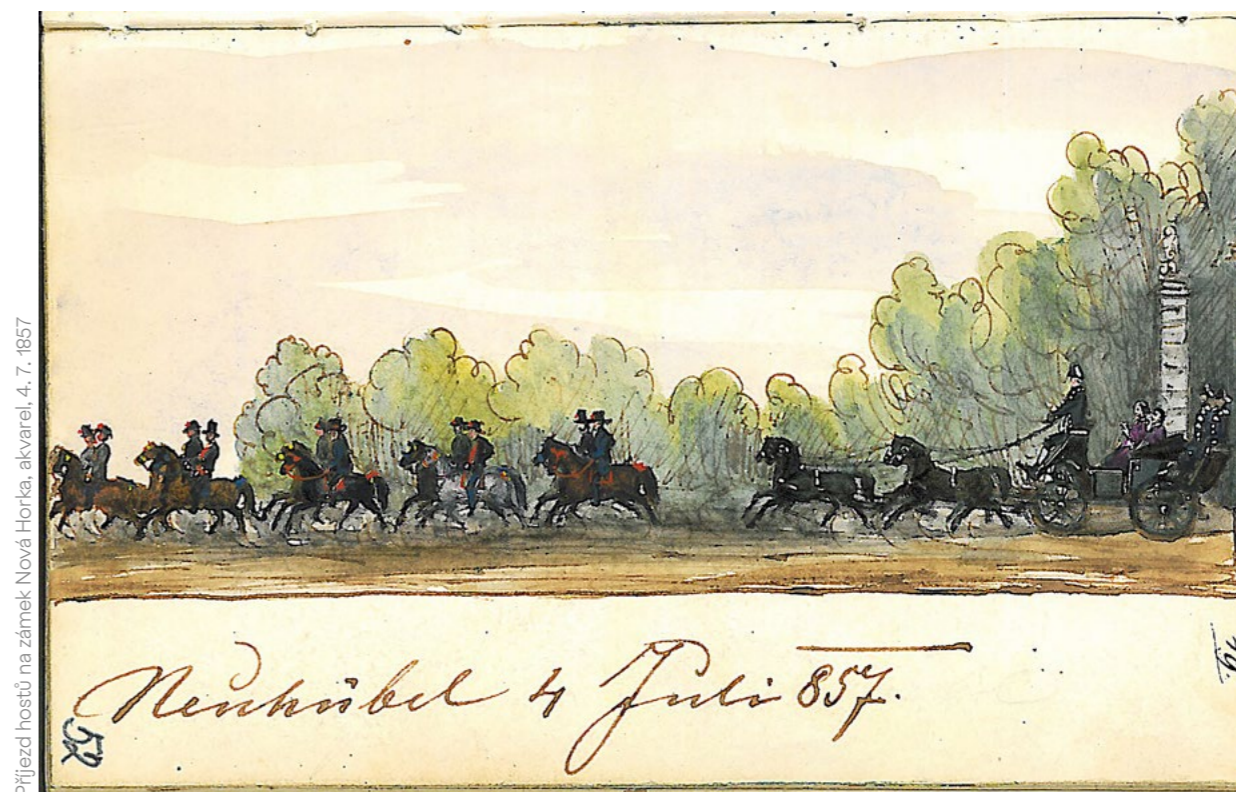 Příjezd hostů na zámek Nová Horka, akvarel, 4. 7. 1857
Neuhübel 4 Juli 857.
52